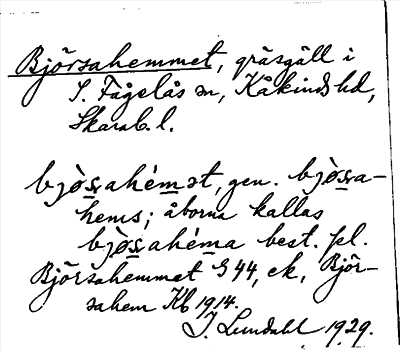 Björsahemmet, gräsgäll i
S. Fågelås sn, Kåkinds hd,
Skarab. l.
bjòsahémət, gen. bjòsa-
hems; åborna kallas
bjòsahéma best. pl.
Björsahemmet § 44, ek, Björ-
sahem Kb 1914.
J. Lundahl 1929.